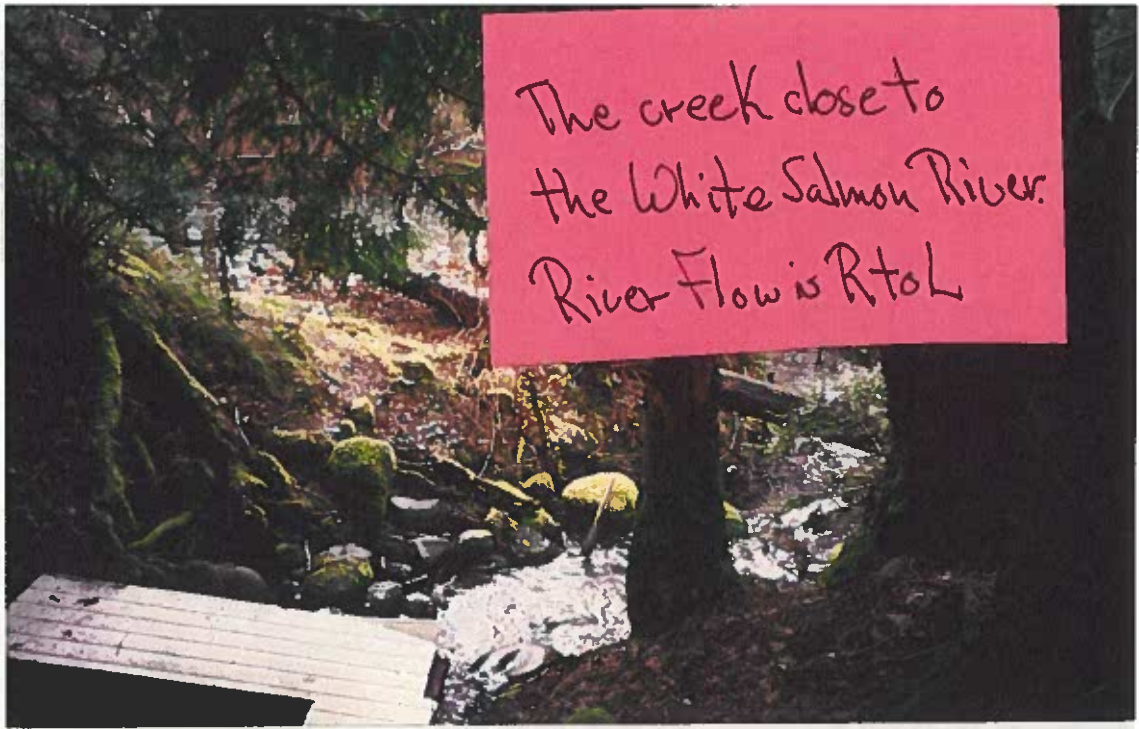 The creek close to
the White Salmon River.
River Flow is R to L